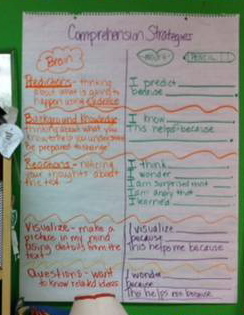 Comprehension Strategies
Brain
PENCIL
Predictions - thinking
about what is going to
happen using evidence
I predict
because
Background Knowledge
thinking about what you
know to help you understand
be prepared to change
I know
This helps because
Reactions - noticing
your thoughts about
the text
I think
I wonder
I am surprised that
I am angry that
I learned
Visualize - make a
picture in my mind
using details from the
text
I visualize
because
This helps me because
Questions - want
to know related ideas
I wonder
because
This helps me because